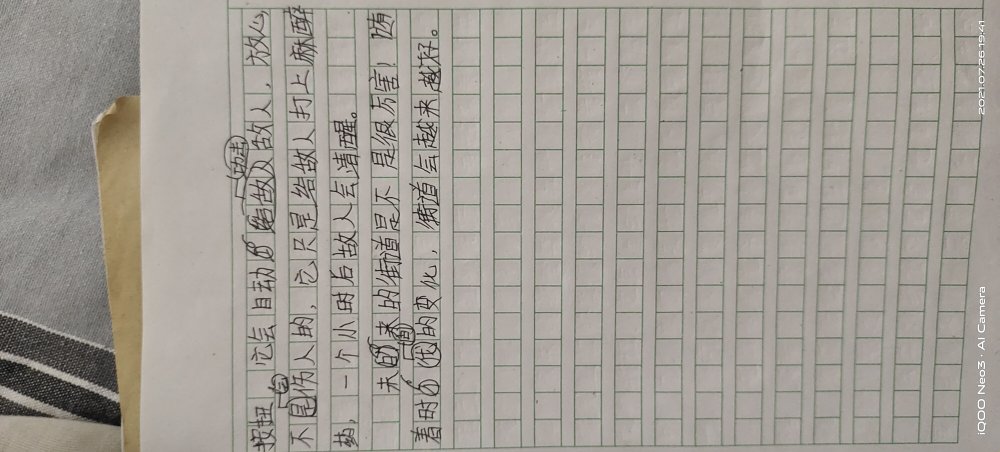 按钮，它会自动攻击敌人，放心，
不会伤人的，它只是给敌人打上麻醉
药，一个小时后敌人会清醒。
未来的街道是不是很厉害！随
着时间的变化，街道会越来越好。
iQOO Neo3 · AI Camera
2021.07.26 19:41